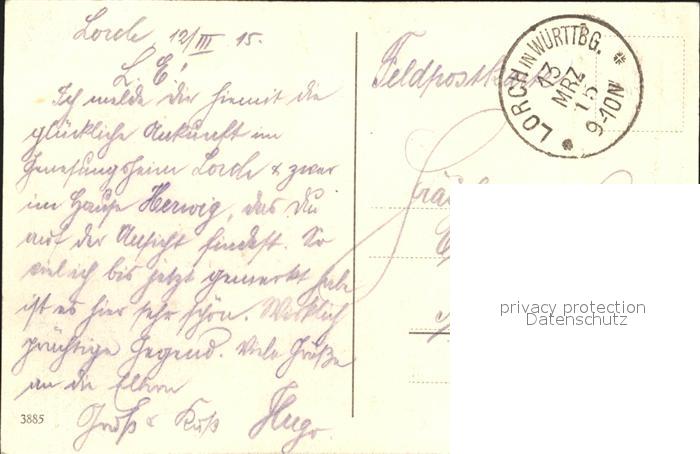 Lorch 12/III 15.
L. E!
Ich melde Dir hiemit die
glückliche Ankunft im
Genesungsheim Lorch & zwar
im Hause Herwig, das Du
auf der Ansicht findest. So
viel ich bis jetzt gemerkt habe
ist es hier sehr schön. Wirklich
prächtige Gegend. Viele Grüße
an die Eltern
Gruß & Kuß Hugo.
3885
Feldpostkarte
LORCH IN WÜRTTBG.
13 MRZ 15
9-10 N
privacy protection
Datenschutz